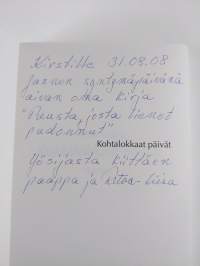 Kirstille 31.08.08
Jannen syntymäpäivänä
aivan oma kirja
"Musta, josta tienot
pudonnut"
Kohtalokkaat päivät
Yösijasta kiittäen
paappa ja Retva-Liisa